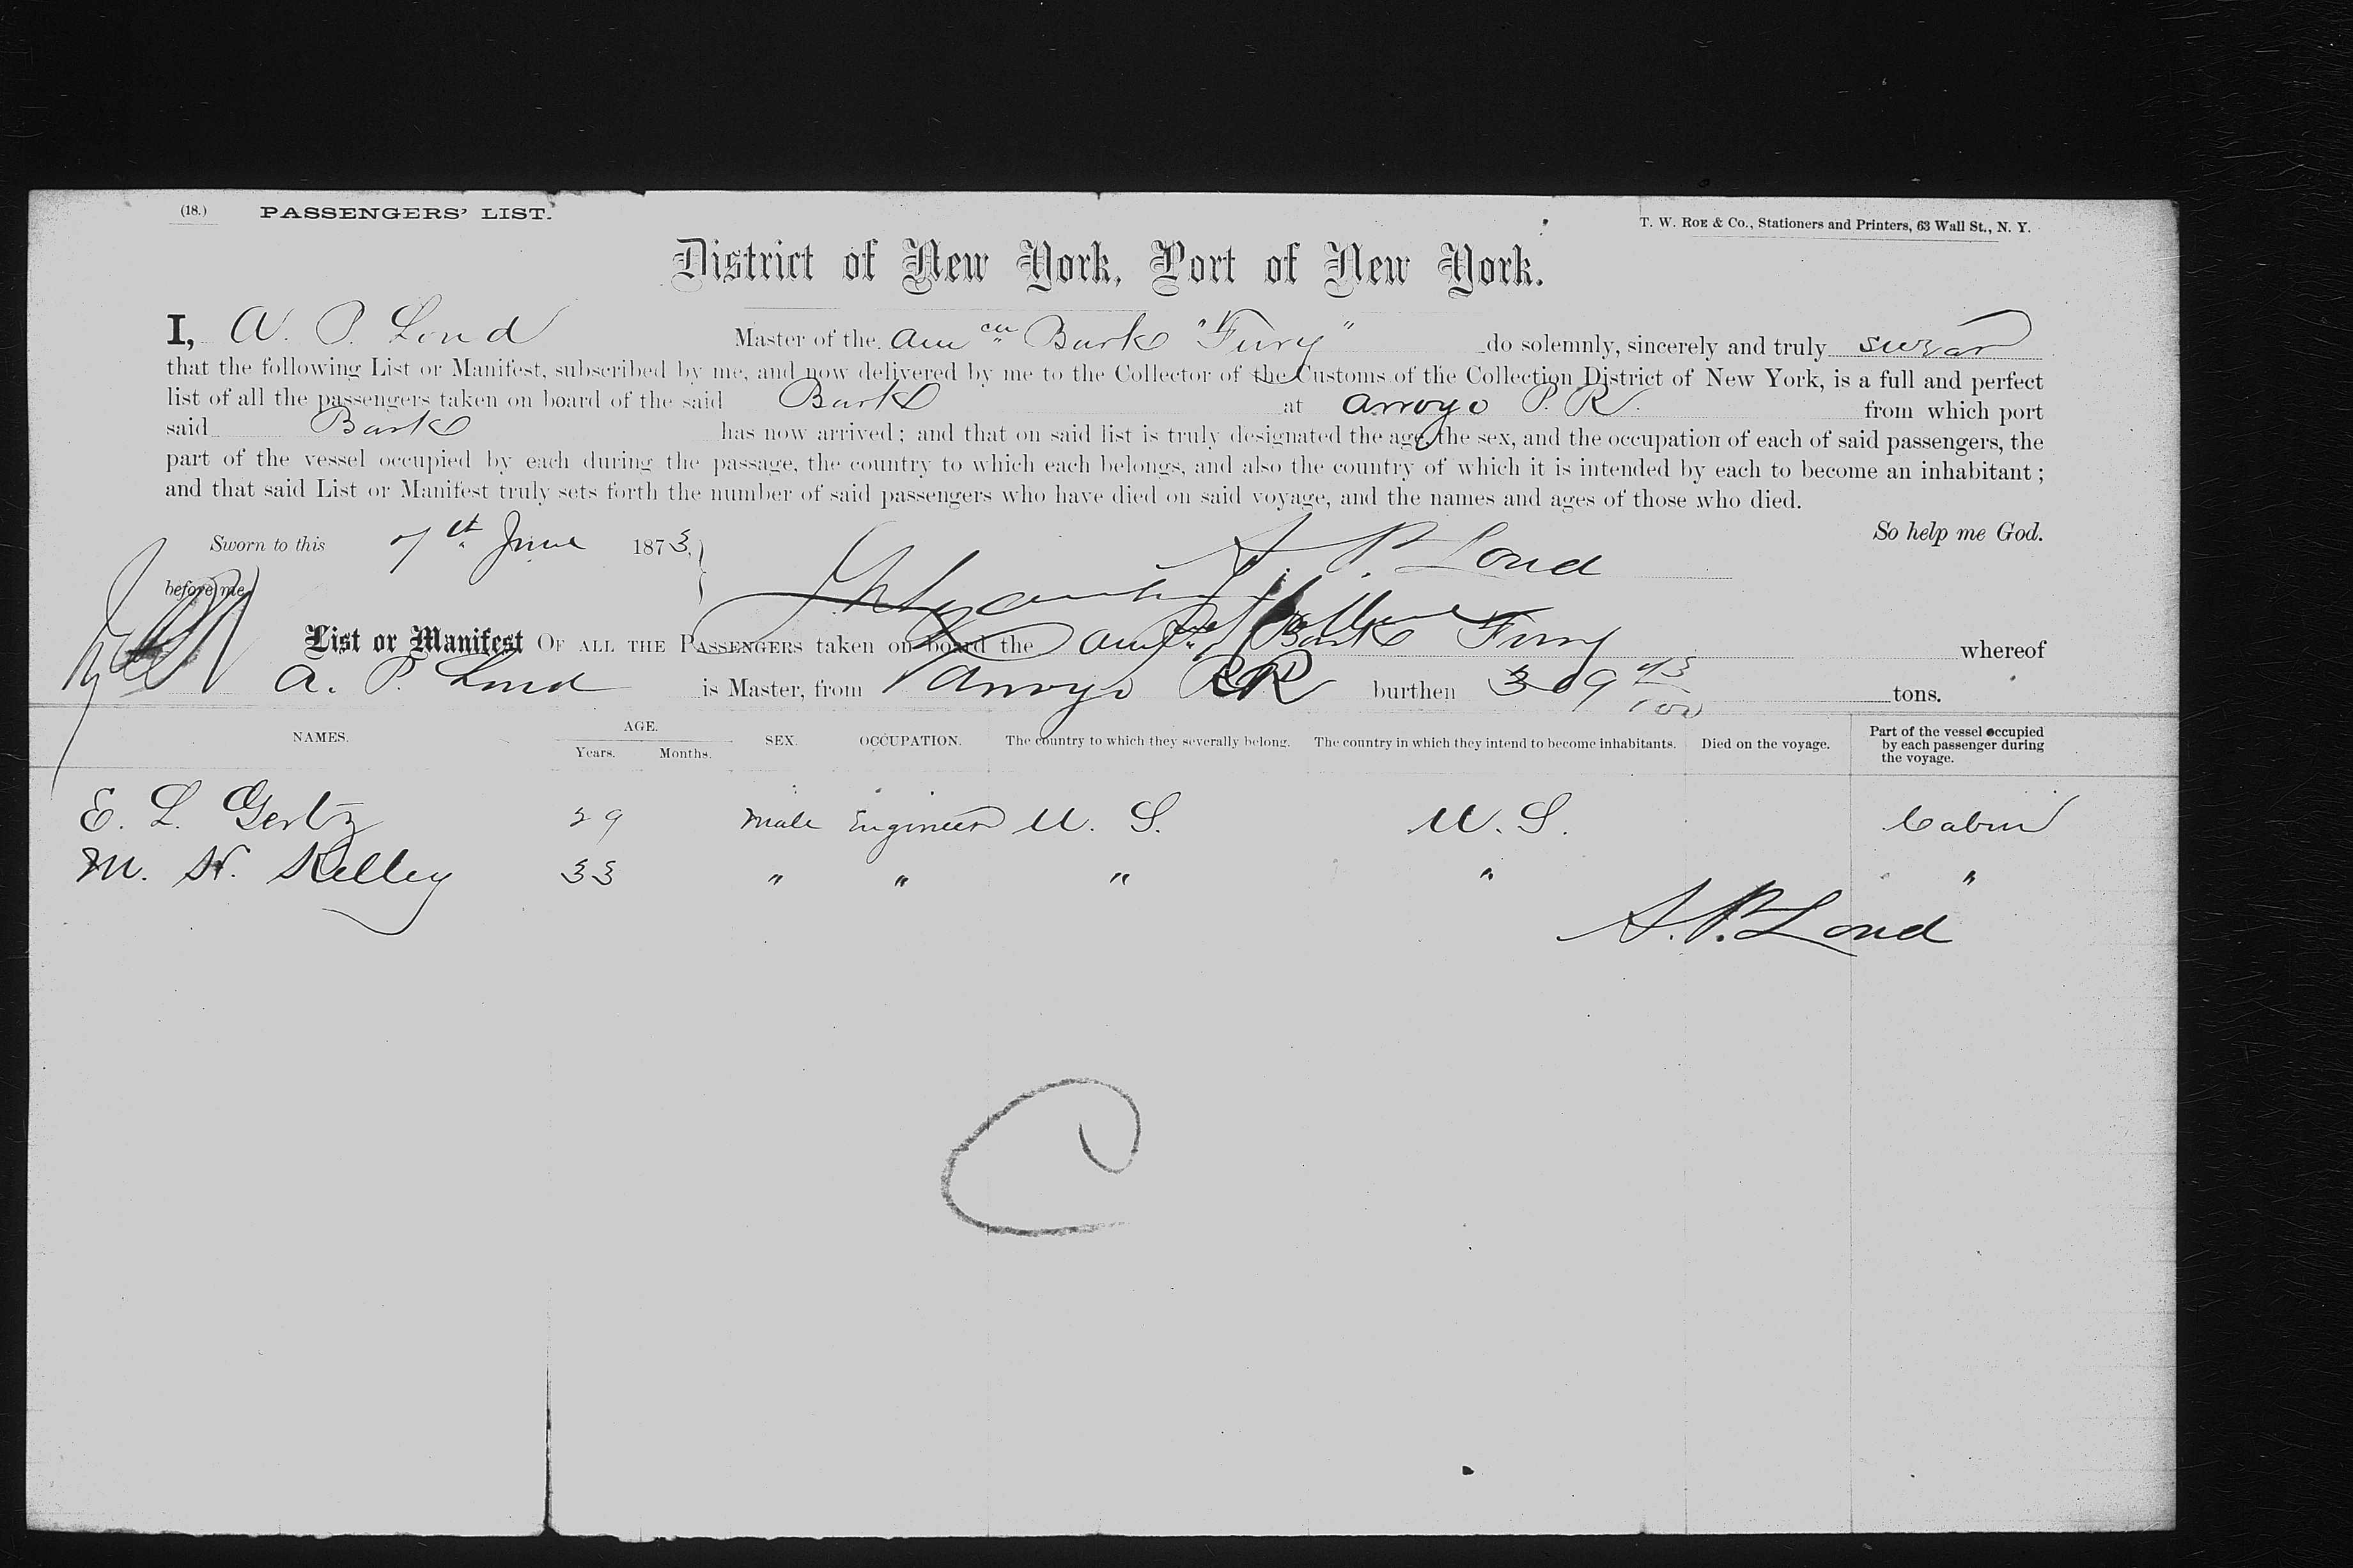 (18.) PASSENGERS' LIST.
T. W. ROE & Co., Stationers and Printers, 63 Wall St., N. Y.
District of New York, Port of New York.
I, A. P. Lond Master of the Am can Bark "Fury" do solemnly, sincerely and truly swear
that the following List or Manifest, subscribed by me, and now delivered by me to the Collector of the Customs of the Collection District of New York, is a full and perfect
list of all the passengers taken on board of the said Bark at Arroyo P. R. from which port
said Bark has now arrived; and that on said list is truly designated the age, the sex, and the occupation of each of said passengers, the
part of the vessel occupied by each during the passage, the country to which each belongs, and also the country of which it is intended by each to become an inhabitant;
and that said List or Manifest truly sets forth the number of said passengers who have died on said voyage, and the names and ages of those who died.
So help me God.
Sworn to this 7th June 1873,
A. P. Lond
before me
List or Manifest OF ALL THE PASSENGERS taken on board the Bark Fury whereof
A. P. Lond is Master, from Arroyo PR burthen 309 tons.
NAMES. AGE. Years. Months. SEX. OCCUPATION. The country to which they severally belong. The country in which they intend to become inhabitants. Died on the voyage. Part of the vessel occupied by each passenger during the voyage.
E. L. Gertz 29 Male Engineer U. S. U. S. Cabin
M. N. Kelley 33 " " " " "
A. P. Lond
C